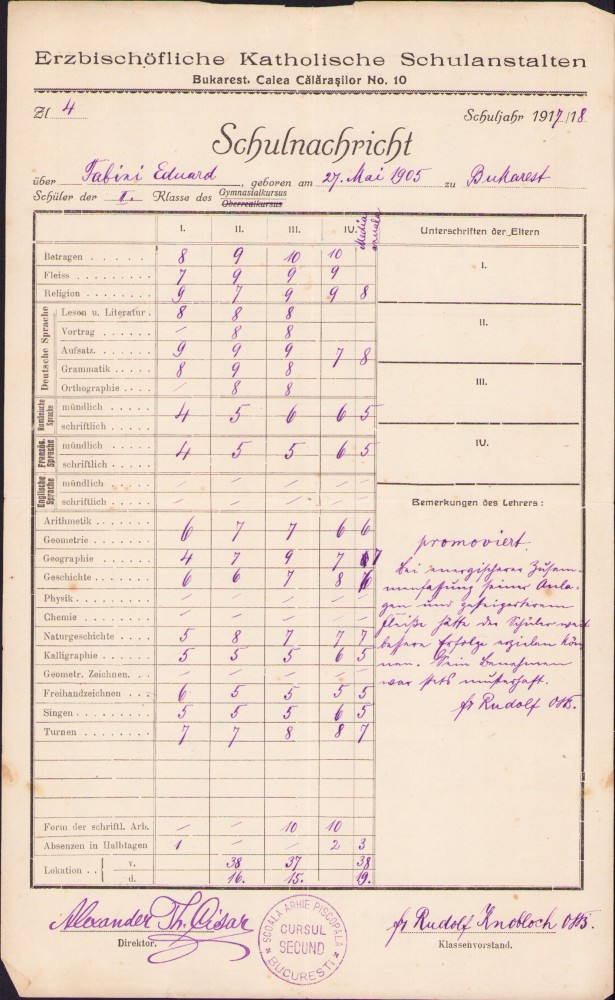 Erzbischöfliche Katholische Schulanstalten
Bukarest. Calea Călărașilor No. 10
Zl 4
Schuljahr 1917/18
Schulnachricht
über Fabini Eduard, geboren am 27. Mai 1905 zu Bukarest
Schüler der II. Klasse des Gymnasialkursus
Oberrealkursus
I. II. III. IV. Media anuala Unterschriften der Eltern
Betragen 8 9 10 10
Fleiss 7 9 9 9
Religion 9 7 9 9 8
Deutsche Sprache
Lesen u. Literatur 8 8 8
Vortrag / 8 8
Aufsatz 9 9 9 7 8
Grammatik 8 9 8
Orthographie / 8 8
Rumänische Sprache
mündlich 4 5 6 6 5
schriftlich
Französ. Sprache
mündlich 4 5 5 6 5
schriftlich
Englische Sprache
mündlich / / / / /
schriftlich / / / / /
Arithmetik 6 7 7 6 6
Geometrie
Geographie 4 7 9 7 7
Geschichte 6 6 7 8
Physik / / / / /
Chemie / / / / /
Naturgeschichte 5 8 7 7 7
Kalligraphie 5 5 5 6 5
Geometr. Zeichnen / / / / /
Freihandzeichnen 6 5 5 5 5
Singen 5 5 5 6 5
Turnen 7 7 8 8 7
Form der schriftl. Arb. / / 10 10
Absenzen in Halbtagen 1 / / 2 3
Lokation
v. 38 37 38
d. 16. 15. 19.
I.
II.
III.
IV.
Bemerkungen des Lehrers :
promoviert.
Bei energischerer Zusam-
menfassung seiner Anla-
gen und gesteigerterem
Fleiße hätte der Schüler weit
bessere Erfolge erzielen kön-
nen. Sein Benehmen
war stets musterhaft.
fr Rudolf
Alexander Th. Cisar
Direktor.
SCOALA ARHIEPISCOPALA
CURSUL
SECUND
BUCURESTI
fr Rudolf Knobloch
Klassenvorstand.